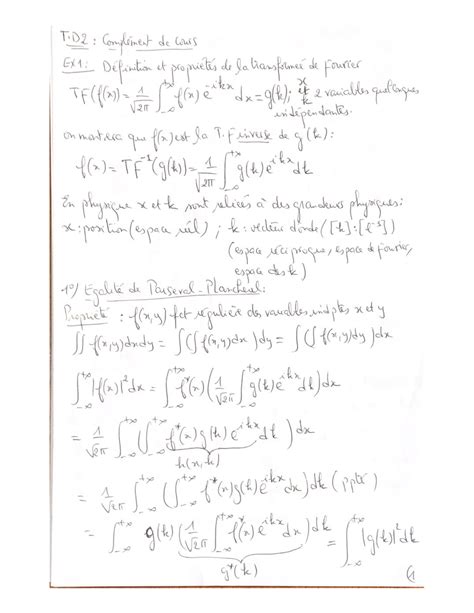 T.D2 : Complément de cours
Ex1: Définition et propriétés de la transformée de Fourier
TF(f(x)) = 1/√2π ∫_{-∞}^{+∞} f(x) e^{-ikx} dx = g(k); x et k 2 variables quelconques
indépendantes.
on montrera que f(x) est la T.F inverse de g(k):
f(x) = TF^{-1}(g(k)) = 1/√2π ∫_{-∞}^{+∞} g(k) e^{ikx} dk
En physique x et k sont reliées à des grandeurs physiques:
x: position (espace réel) ; k: vecteur d'onde ([k]:[L^{-1}])
(espace réciproque, espace de Fourier,
espace des k)
1°/ Egalité de Parseval-Plancherel:
Propriété : f(x,y) fct régulière des variables indptes x et y
∫∫ f(x,y)dxdy = ∫(∫f(x,y)dx)dy = ∫(∫f(x,y)dy)dx
∫_{-∞}^{+∞} |f(x)|^2 dx = ∫_{-∞}^{+∞} f*(x) (1/√2π ∫_{-∞}^{+∞} g(k) e^{ikx} dk) dx
= 1/√2π ∫_{-∞}^{+∞} (∫_{-∞}^{+∞} f*(x) g(k) e^{ikx} dk) dx
h(x,k)
= 1/√2π ∫_{-∞}^{+∞} (∫_{-∞}^{+∞} f*(x) g(k) e^{ikx} dx) dk (ppté)
= ∫_{-∞}^{+∞} g(k) (1/√2π ∫_{-∞}^{+∞} f*(x) e^{ikx} dx) dk = ∫_{-∞}^{+∞} |g(k)|^2 dk
g*(k)
(1